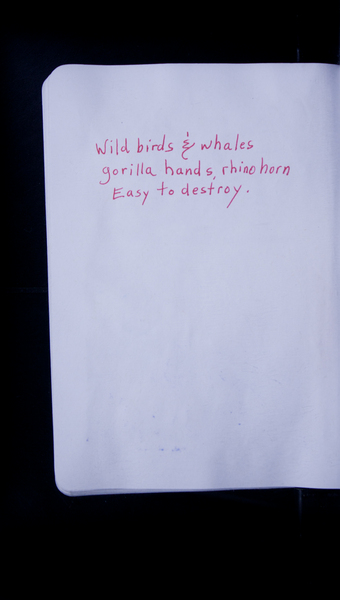 Wild birds & whales
gorilla hands, rhino horn
Easy to destroy.